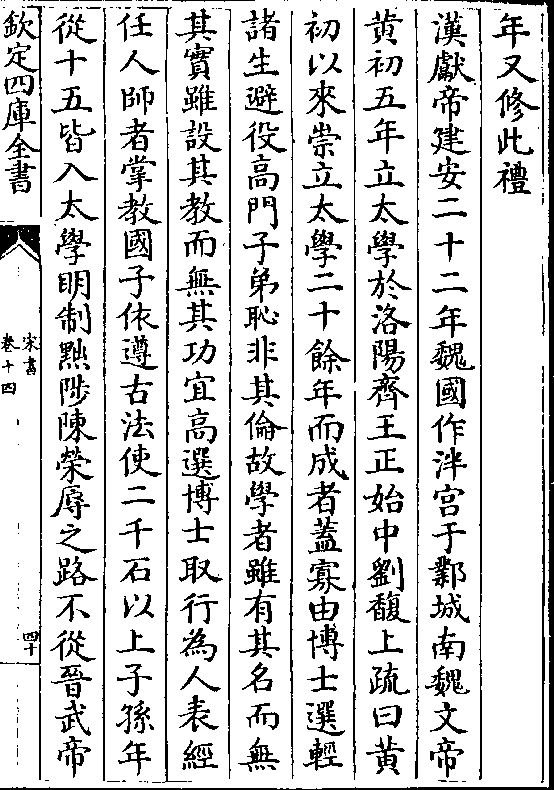 年又修此禮
漢獻帝建安二十二年魏國作泮宫于鄴城南魏文帝
黄初五年立太學於洛陽齊王正始中劉馥上疏曰黄
初以來崇立太學二十餘年而成者蓋寡由博士選輕
諸生避役高門子弟恥非其倫故學者雖有其名而無
其實雖設其教而無其功宜高選博士取行為人表經
任人師者掌教國子依遵古法使二千石以上子孫年
從十五皆入太學明制黜陟陳榮辱之路不從晉武帝
欽定四庫全書
宋書
卷十四
四十